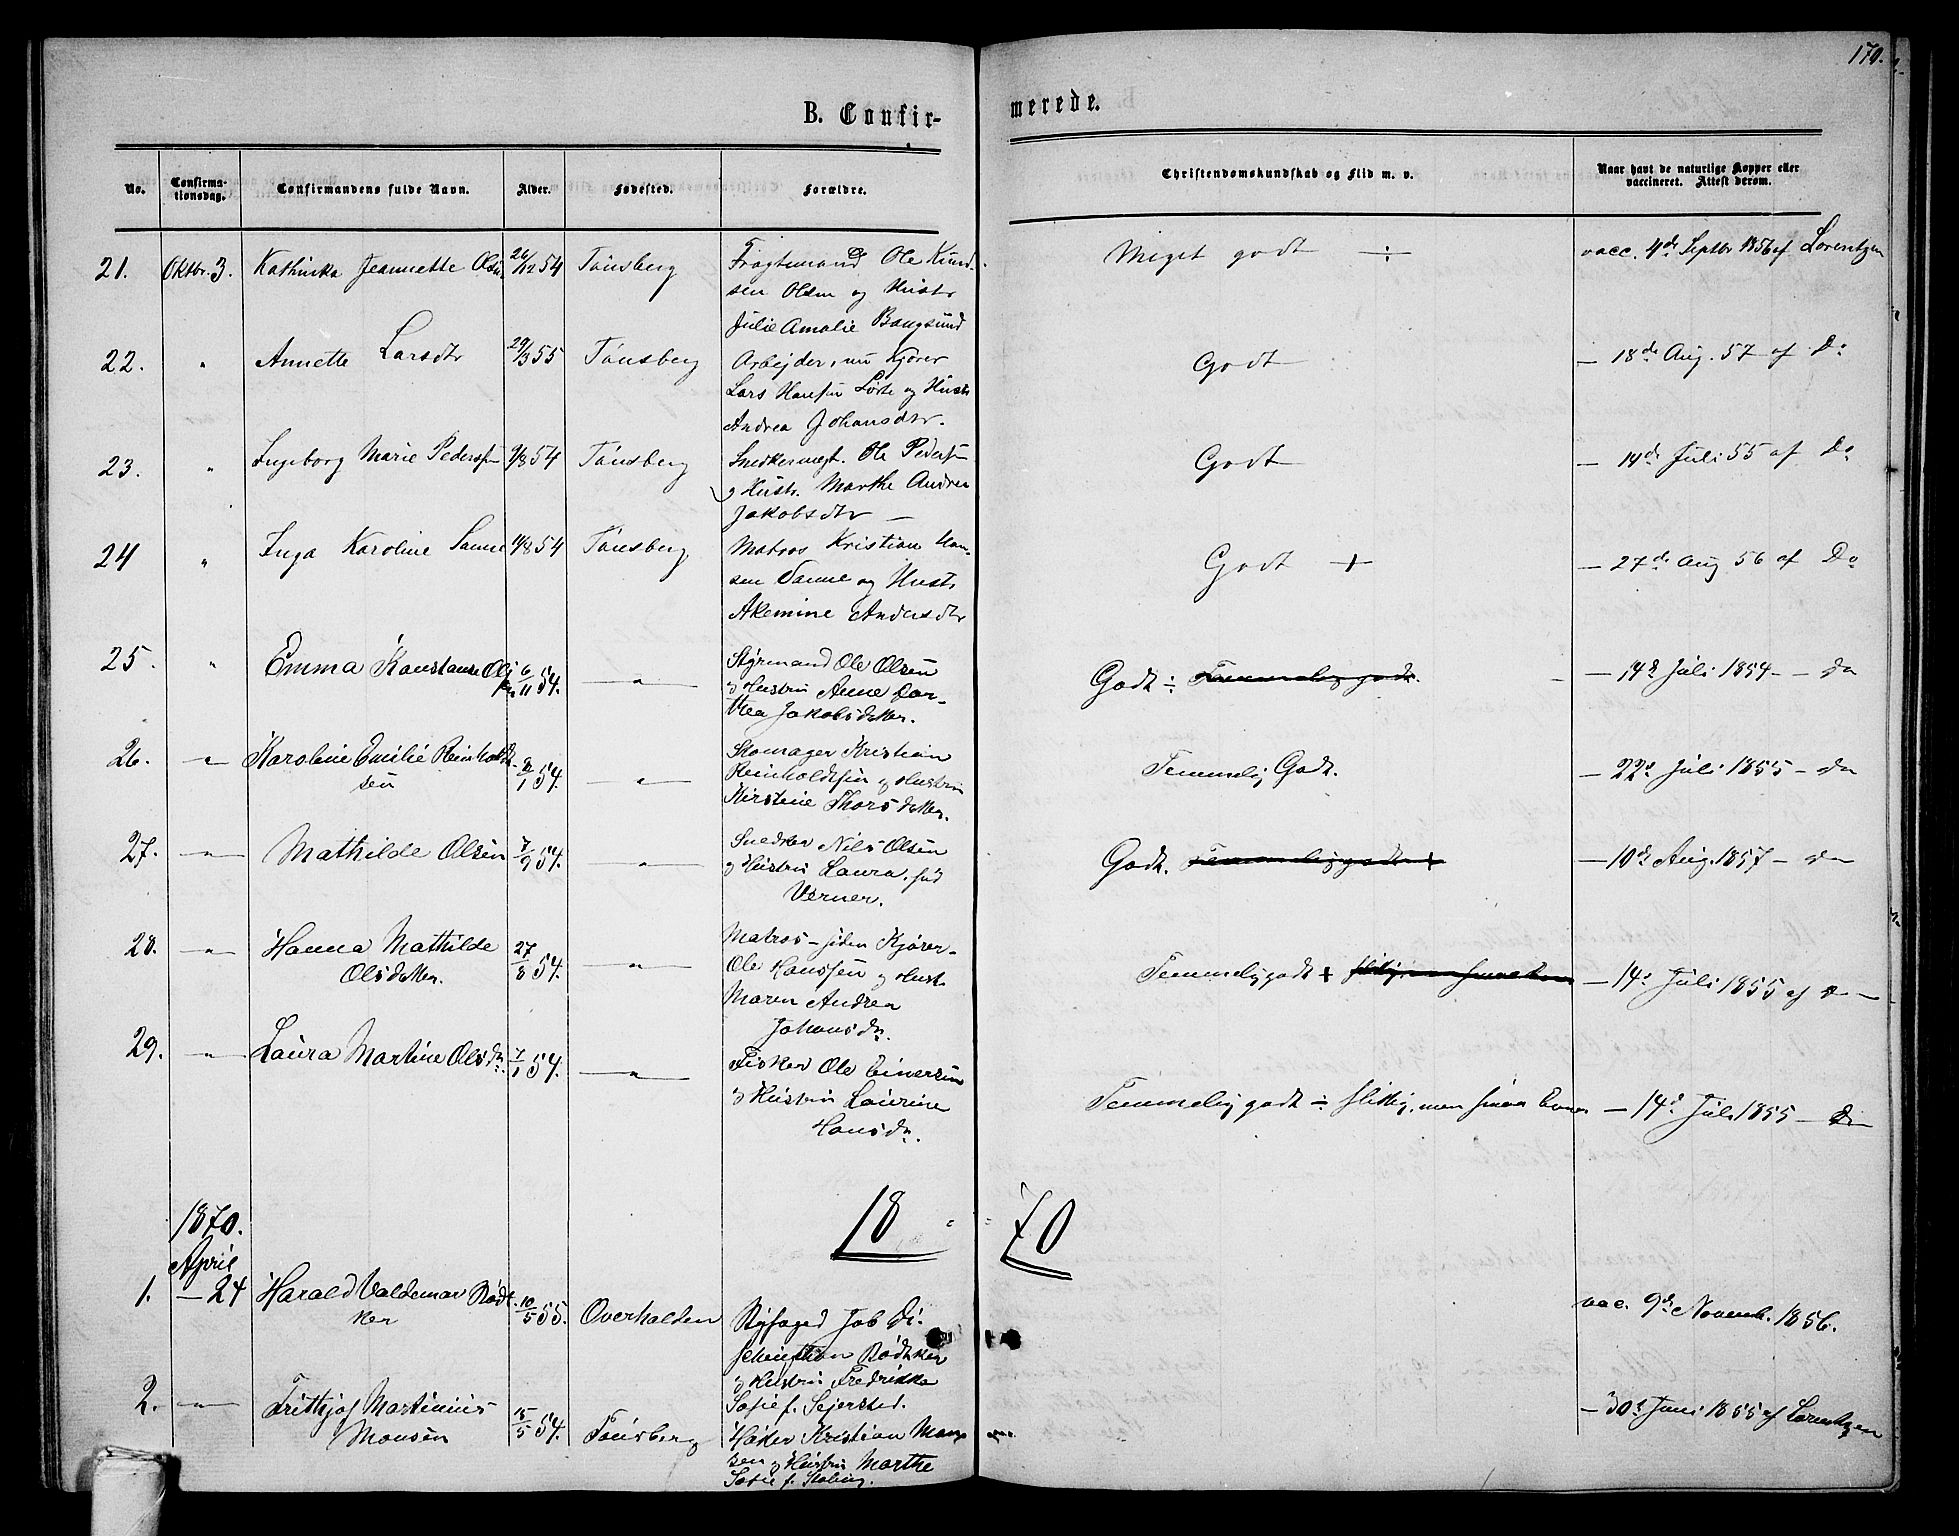 170.
B. Confir-
merede.
No.
Confirma-
tionsdag.
Confirmandens fulde Navn.
Alder.
Fødested.
Forældre.
Christendomskundskab og Flid m. v.
Naar havt de naturlige Kopper eller
vaccineret. Attest derom.
21. Oktbr. 3. Kathinka Jeannette Olsen 26/12 54 Tønsberg Fragtemand Ole Knud- Meget godt ÷ vacc. 4de Septbr 1856 af Lorentzen
sen Olsen og Hustr
Julie Amalie Bangsund
22. " Annette Larsdtr 29/3 55 Tønsberg Arbejder, nu Kjører Godt — 18de Aug. 57 af Do
Lars Hansen Lørte og Hustr
Andrea Johansdtr.
23. " Ingeborg Marie Pedersen 9/8 54 Tønsberg Snedkermest. Ole Pedersen Godt — 14de Juli 55 af Do
og Hustr. Marthe Andrea
Jakobsdtr —
24 " Inga Karoline Sanne 11/8 54 Tønsberg Matros Kristian Han- Godt + — 27de Aug 56 af Do
sen Sanne og Hustr
Akemine Andersdtr
25. " Emma Konstanse Ol- 6/11 54. — " — Styrmand Ole Olsen Godt ÷ Temmelig godt. — 14de Juli 1854 — do
sen
og Hustru Anne Dor-
thea Jakobsdatter.
26. — " Karoline Emilie Reinholdt- 8/1 54. — " — Skomager Kristian Temmelig Godt. — 22de Juli 1855 — do
sen
Reinholdtsen og Hustru
Kirstine Thorsdatter.
27. — " — Mathilde Olsen 7/9 54. — " — Snedker Nils Olsen Godt. Temmelig godt + — 10de Aug. 1857 — do
og Hustru Laura, fød
Verner.
28. — " — Hanna Mathilde 27/8 54. — " — Matros — siden Kjører — Temmelig godt + flittig, men — 14de Juli 1855 af do —
Olsdatter.
Ole Hanssen og Hust.
Maren Andrea
Johansdr.
29. — " — Laura Martine Olsdr. 7/1 54. — " — Fisker Ole Einersen Temmelig godt ÷ flittig, men smaa Evner — 14de Juli 1855 — do
og Hustru Laurine
Hansdr.
18 = = 70
1870.
April
1. — 24 Harald Valdemar Bødt- 10/5 55. Overhalden Byfoged Job Di- vac. 9de Novemb. 1856.
ker
Bødtker
og Hustru Fredrikke
Sofie f. Sejersted.
2. — " — Frithjof Martinius 15/5 54. Tønsberg Høker Kristian Mon- — 30te Juni 1855 af Lorentzen
Monsen
sen og Hustru Marthe
Sofie f.